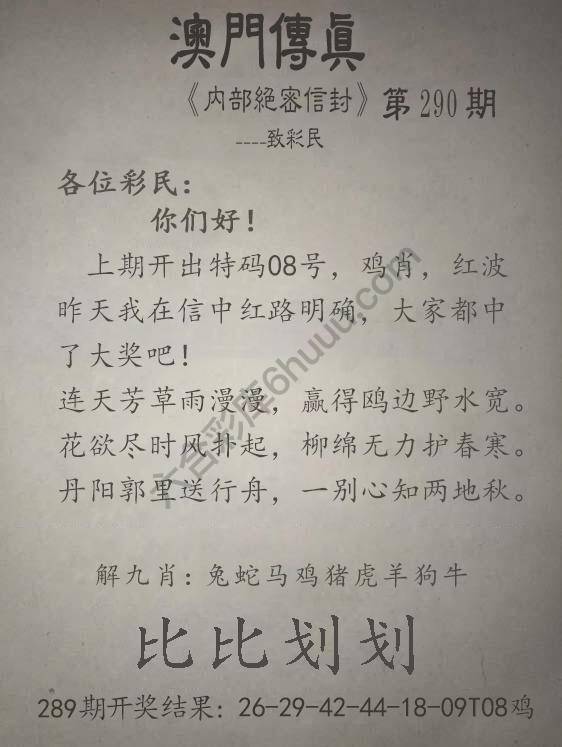 澳門傳真
《内部絕密信封》第290期
----致彩民
各位彩民：
你们好！
上期开出特码08号，鸡肖，红波
昨天我在信中红路明确，大家都中
了大奖吧！
连天芳草雨漫漫，赢得鸥边野水宽。
花欲尽时风扑起，柳绵无力护春寒。
丹阳郭里送行舟，一别心知两地秋。
解九肖：兔蛇马鸡猪虎羊狗牛
比比划划
289期开奖结果：26-29-42-44-18-09T08鸡
六合彩库6huuu.com